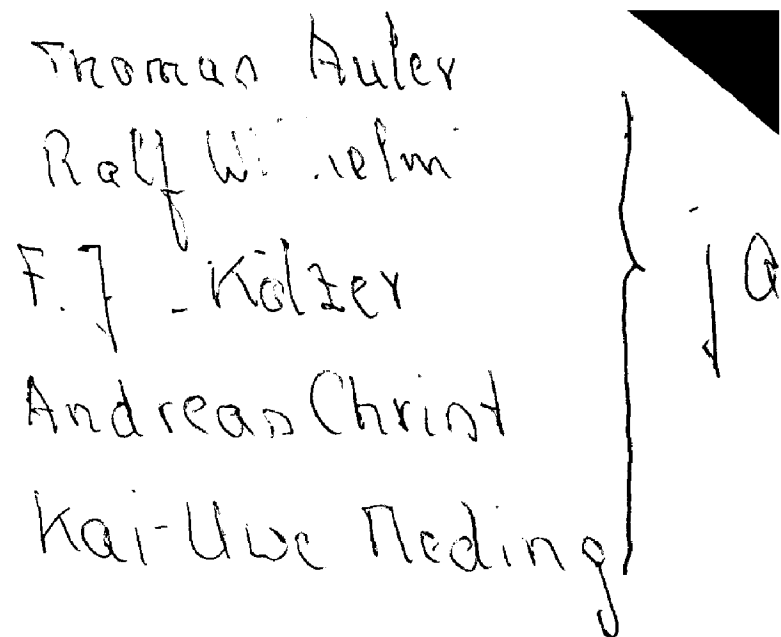 Thomas Auler
Ralf Wilhelmi
F. J. Kölzer
Andreas Christ
Kai-Uwe Meding
ja